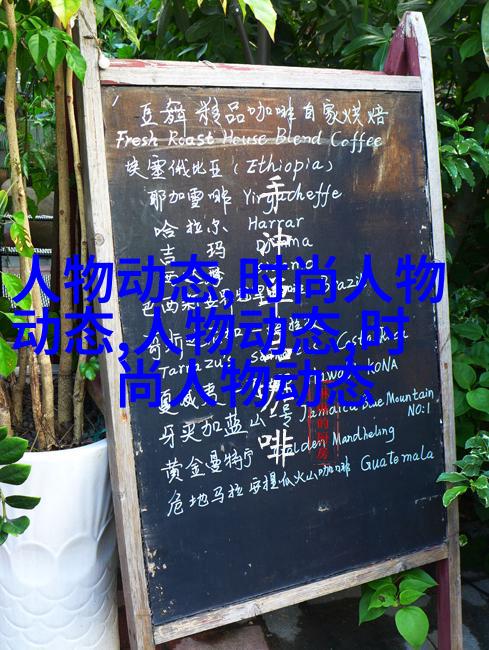 豆解精品咖啡自家烘焙
Fresh Roast House Blend Coffee
埃塞俄比亚(Ethiopia)
耶加雪啡 Yirgacheffe
哈拉尔 Harrar
吉玛 Djimma
人物动态,时尚人物
动态,人物动态,时
尚人物动态
夏威夷 KONA
牙买加蓝山一号 Jamaica Blue Mountain
NO:1
黄金曼特宁 Golden Mandheling
危地马拉安提瓜火山咖啡 Guatemala